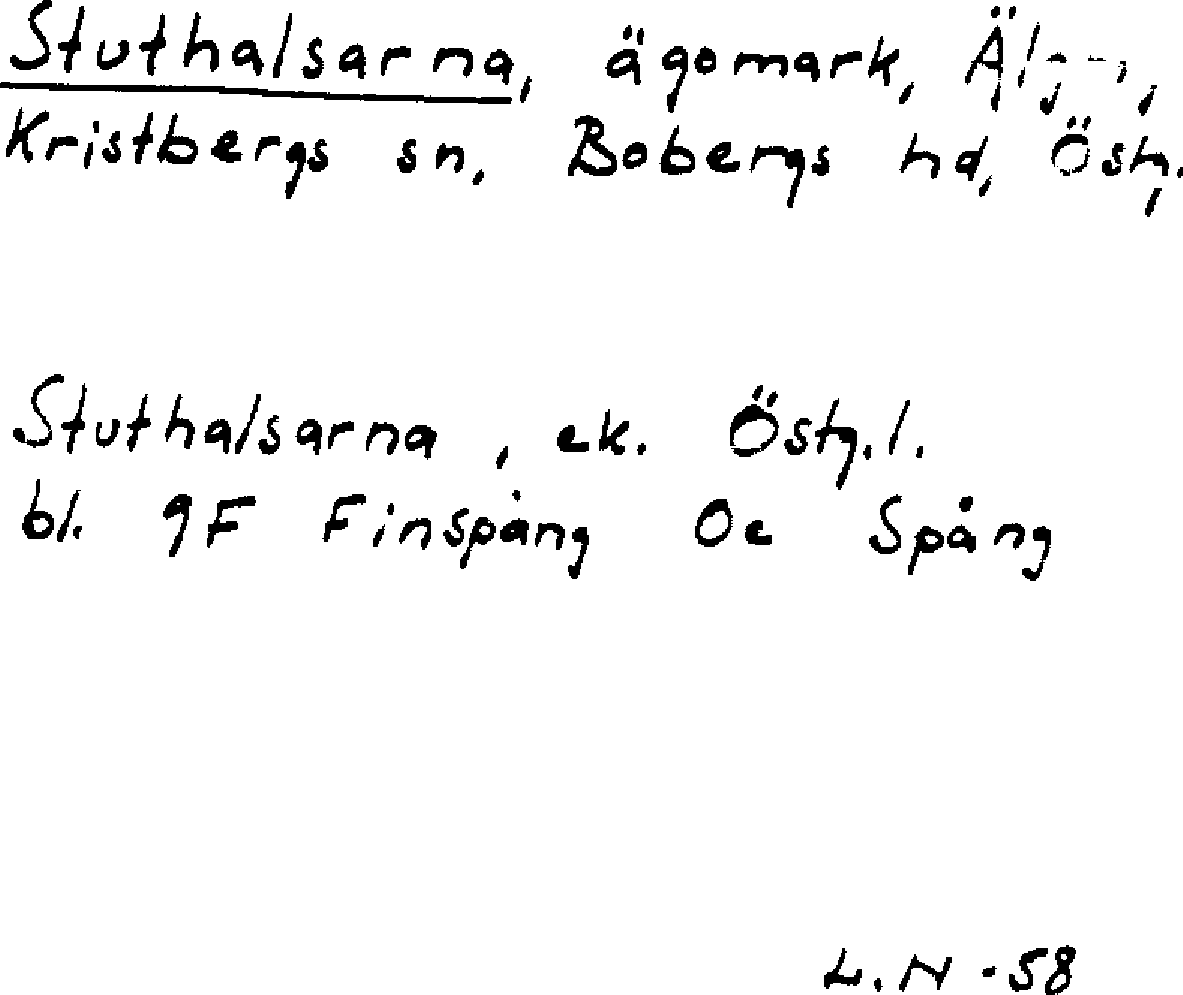 Stuthalsarna, ägomark,
Kristbergs sn, Bobergs hd, Östg.
Stuthalsarna, ek. Östg.l.
bl. 9F Finspång Oc Spång
L.N -58